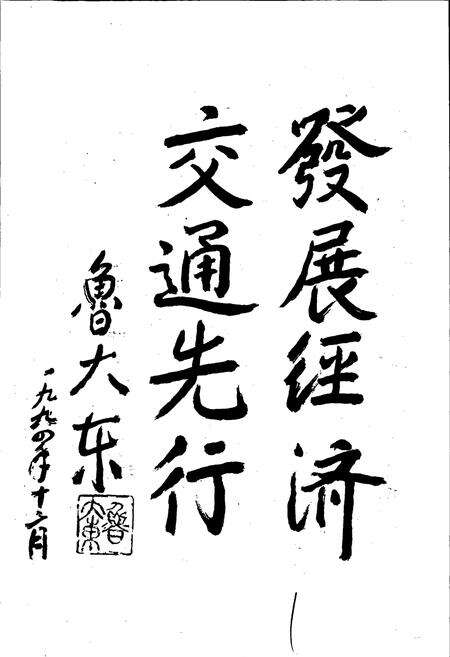 發展經济
交通先行
魯大东
一九九四年十二月
魯
大東